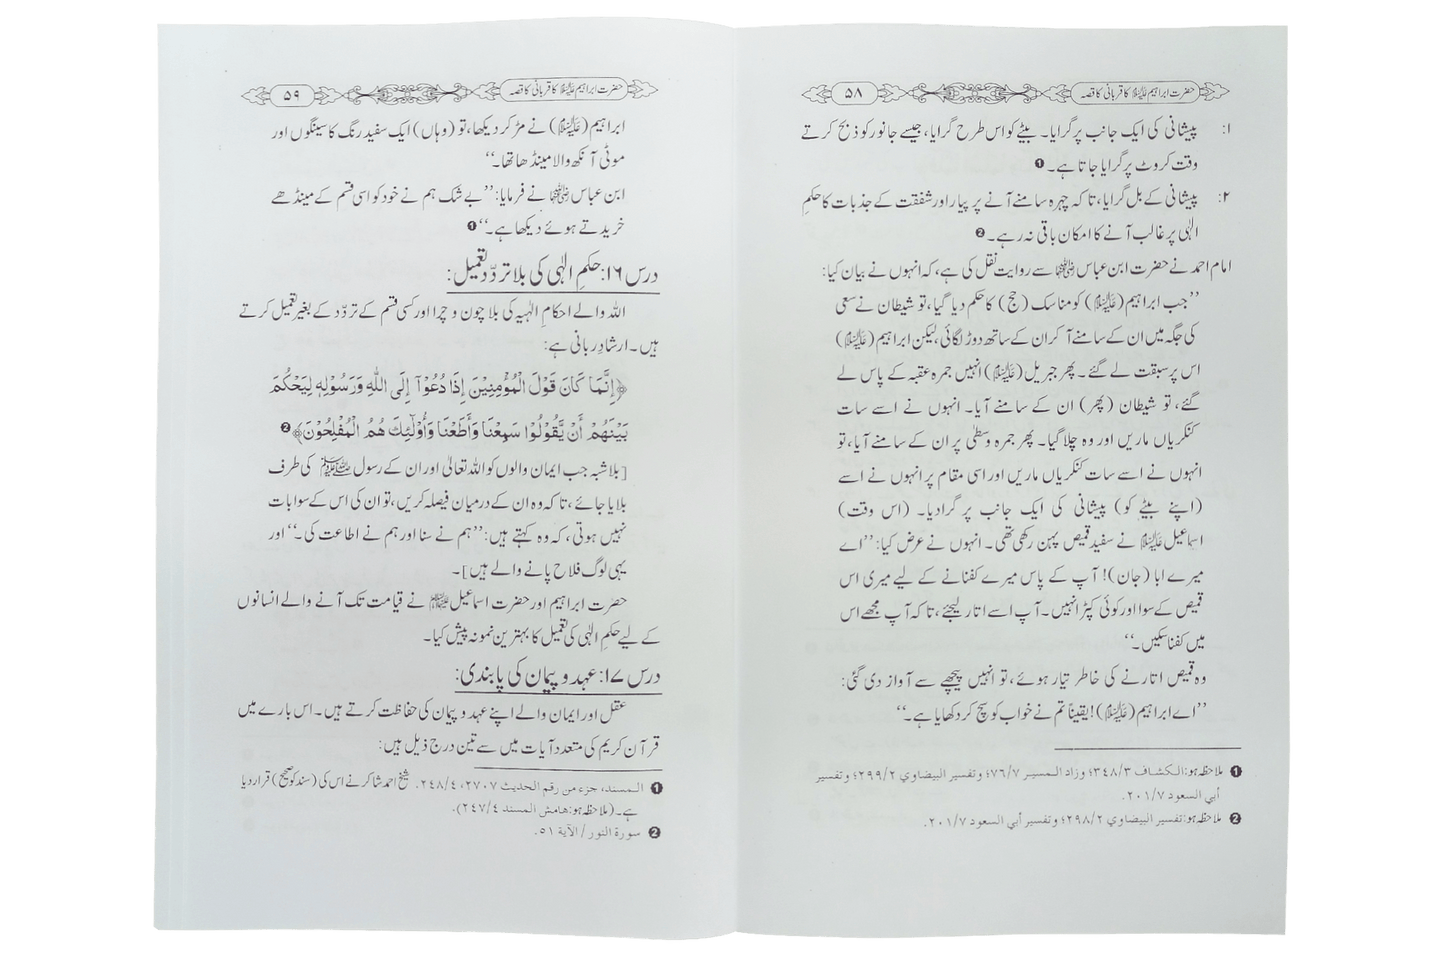 حضرت ابراہیم علیہ السلام کا قربانی کا قصہ
۵۸
۱: پیشانی کی ایک جانب پر گرایا۔ بیٹے کو اس طرح گرایا، جیسے جانور کو ذبح کرتے
وقت کروٹ پر گرایا جاتا ہے۔ ❶
۲: پیشانی کے بل گرایا، تاکہ چہرہ سامنے آنے پر پیار اور شفقت کے جذبات کا حکمِ
الٰہی پر غالب آنے کا امکان باقی نہ رہے۔ ❷
امام احمد نے حضرت ابن عباس رضی اللہ عنہما سے روایت نقل کی ہے، کہ انہوں نے بیان کیا:
’’جب ابراہیم (علیہ السلام) کو مناسک (حج) کا حکم دیا گیا، تو شیطان نے سعی
کی جگہ میں ان کے سامنے آ کر ان کے ساتھ دوڑ لگائی، لیکن ابراہیم (علیہ السلام)
اس پر سبقت لے گئے۔ پھر جبریل (علیہ السلام) انہیں جمرہ عقبہ کے پاس لے
گئے، تو شیطان (پھر) ان کے سامنے آیا۔ انہوں نے اسے سات
کنکریاں ماریں اور وہ چلا گیا۔ پھر جمرہ وسطیٰ پر ان کے سامنے آیا، تو
انہوں نے اسے سات کنکریاں ماریں اور اسی مقام پر انہوں نے اسے
(اپنے بیٹے کو) پیشانی کی ایک جانب پر گرا دیا۔ (اس وقت)
اسماعیل علیہ السلام نے سفید قمیص پہن رکھی تھی۔ انہوں نے عرض کیا: ’’اے
میرے ابا (جان)! آپ کے پاس میرے کفنانے کے لیے میری اس
قمیص کے سوا اور کوئی کپڑا نہیں۔ آپ اسے اتار لیجئے، تاکہ آپ مجھے اس
میں کفنا سکیں۔‘‘
وہ قمیص اتارنے کی خاطر تیار ہوئے، تو انہیں پیچھے سے آواز دی گئی:
’’اے ابراہیم (علیہ السلام)! یقیناً تم نے خواب کو سچ کر دکھایا ہے۔‘‘
❶ ملاحظہ ہو: الکشاف ۳۴۸/۳؛ وزاد المسیر ۷۶/۷؛ وتفسیر البیضاوي ۲۹۹/۲؛ وتفسیر
أبي السعود ۲۰۱/۷.
❷ ملاحظہ ہو: تفسیر البیضاوي ۲۹۸/۲؛ وتفسیر أبي السعود ۲۰۱/۷.
حضرت ابراہیم علیہ السلام کا قربانی کا قصہ
۵۹
ابراہیم (علیہ السلام) نے مڑ کر دیکھا، تو (وہاں) ایک سفید رنگ کا سینگوں اور
موٹی آنکھ والا مینڈھا تھا۔‘‘
ابن عباس رضی اللہ عنہما نے فرمایا: ’’بے شک ہم نے خود کو اسی قسم کے مینڈھے
خریدتے ہوئے دیکھا ہے۔‘‘ ❶
درس ۱۶: حکمِ الٰہی کی بلا تردّد تعمیل:
اللہ والے احکامِ الٰہیہ کی بلا چون و چرا اور کسی قسم کے تردّد کے بغیر تعمیل کرتے
ہیں۔ ارشادِ ربانی ہے:
﴿إِنَّمَا كَانَ قَوْلَ الْمُؤْمِنِيْنَ إِذَا دُعُوْٓا إِلَى اللّٰهِ وَرَسُوْلِهٖ لِيَحْكُمَ
بَيْنَهُمْ أَنْ يَّقُوْلُوْا سَمِعْنَا وَأَطَعْنَا وَأُوْلٰٓئِكَ هُمُ الْمُفْلِحُوْنَ﴾ ❷
[بلاشبہ جب ایمان والوں کو اللہ تعالیٰ اور ان کے رسول ﷺ کی طرف
بلایا جائے، تاکہ وہ ان کے درمیان فیصلہ کریں، تو ان کی اس کے سوا بات
نہیں ہوتی، کہ وہ کہتے ہیں: ’’ہم نے سنا اور ہم نے اطاعت کی۔‘‘ اور
یہی لوگ فلاح پانے والے ہیں]۔
حضرت ابراہیم اور حضرت اسماعیل علیہما السلام نے قیامت تک آنے والے انسانوں
کے لیے حکمِ الٰہی کی تعمیل کا بہترین نمونہ پیش کیا۔
درس ۱۷: عہد و پیمان کی پابندی:
عقل اور ایمان والے اپنے عہد و پیمان کی حفاظت کرتے ہیں۔ اس بارے میں
قرآن کریم کی متعدد آیات میں سے تین درج ذیل ہیں:
❶ المسند، جزء من رقم الحدیث ۲۷۰۷، ۲۴۸/۴. شیخ احمد شاکر نے اس کی (سند کو صحیح) قرار دیا
ہے۔ (ملاحظہ ہو: ھامش المسند ۲۴۷/۴).
❷ سورة النور / الآیة ۵۱.